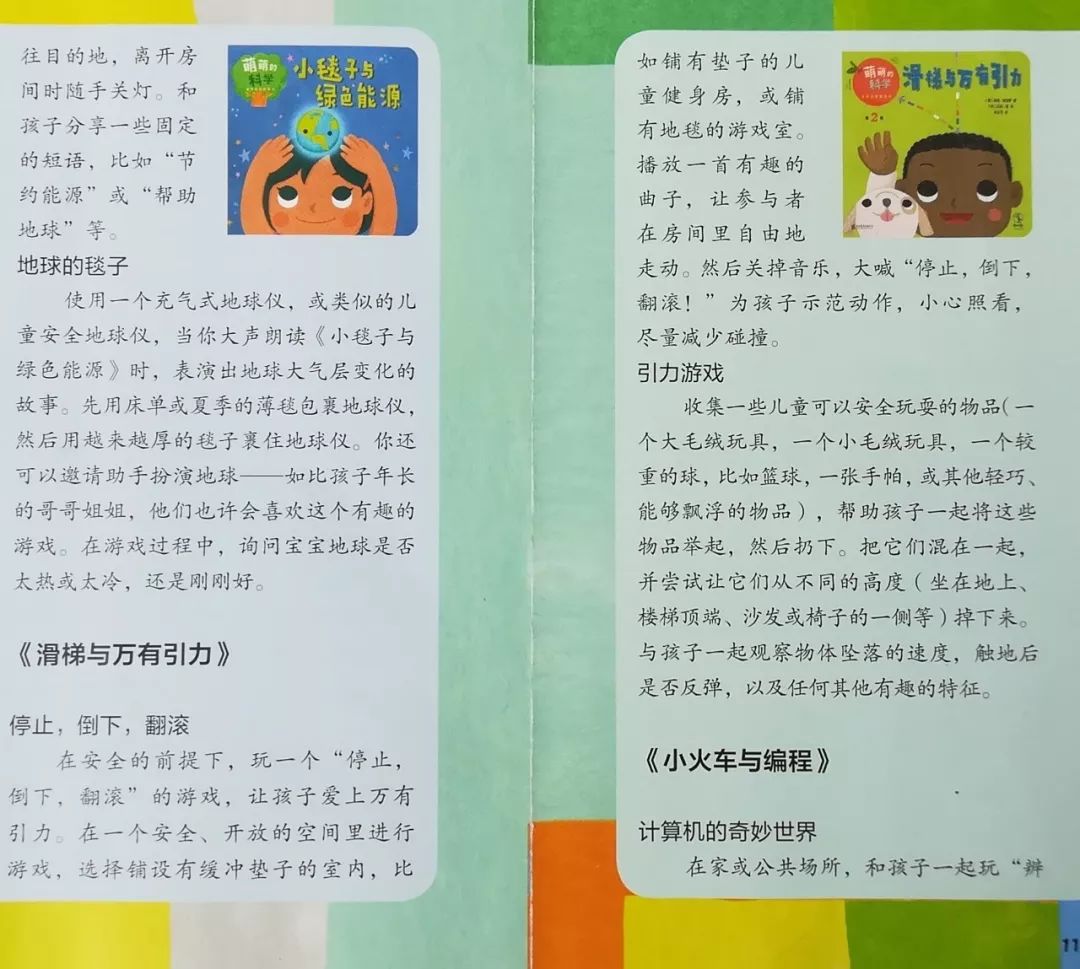 往目的地，离开房
间时随手关灯。和
孩子分享一些固定
的短语，比如“节
约能源”或“帮助
地球”等。
萌萌的
科学
小毯子与
绿色能源
地球的毯子
使用一个充气式地球仪，或类似的儿
童安全地球仪，当你大声朗读《小毯子与
绿色能源》时，表演出地球大气层变化的
故事。先用床单或夏季的薄毯包裹地球仪，
然后用越来越厚的毯子裹住地球仪。你还
可以邀请助手扮演地球——如比孩子年长
的哥哥姐姐，他们也许会喜欢这个有趣的
游戏。在游戏过程中，询问宝宝地球是否
太热或太冷，还是刚刚好。
《滑梯与万有引力》
停止，倒下，翻滚
在安全的前提下，玩一个“停止，
倒下，翻滚”的游戏，让孩子爱上万有
引力。在一个安全、开放的空间里进行
游戏，选择铺设有缓冲垫子的室内，比
如铺有垫子的儿
童健身房，或铺
有地毯的游戏室。
播放一首有趣的
曲子，让参与者
在房间里自由地
萌萌的
科学
2
滑梯与万有引力
走动。然后关掉音乐，大喊“停止，倒下，
翻滚！”为孩子示范动作，小心照看，
尽量减少碰撞。
引力游戏
收集一些儿童可以安全玩耍的物品（一
个大毛绒玩具，一个小毛绒玩具，一个较
重的球，比如篮球，一张手帕，或其他轻巧、
能够飘浮的物品），帮助孩子一起将这些
物品举起，然后扔下。把它们混在一起，
并尝试让它们从不同的高度（坐在地上、
楼梯顶端、沙发或椅子的一侧等）掉下来。
与孩子一起观察物体坠落的速度，触地后
是否反弹，以及任何其他有趣的特征。
《小火车与编程》
计算机的奇妙世界
在家或公共场所，和孩子一起玩“辨
11